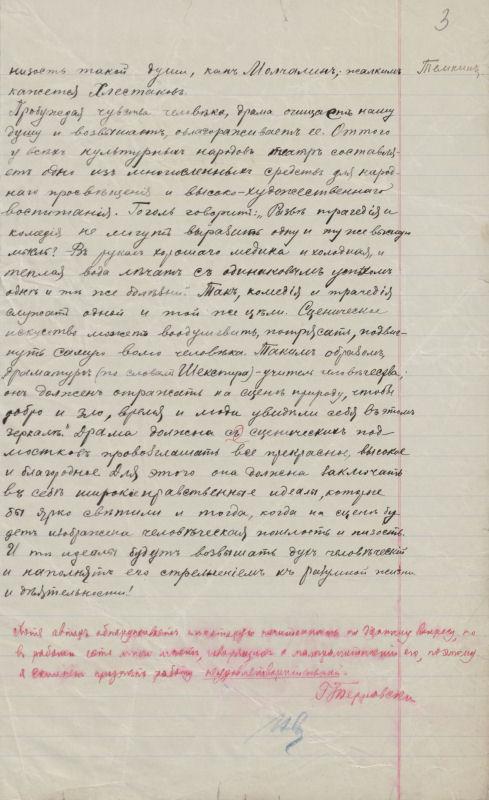 3
низость такой души, какъ Молчалинъ; жалкимъ Темкинъ
кажется Хлестаковъ.
Пробуждая чувства человѣка, драма очищаетъ нашу
душу и возвышаетъ, облагораживаетъ ее. Оттого
у всѣхъ культурныхъ народовъ театръ составля-
етъ одно изъ многочисленныхъ средствъ для народ-
наго просвѣщенія и высоко-художественнаго
воспитанія. Гоголь говоритъ: „Развѣ трагедія и
комедія не могутъ выразить одну и ту же высокую
мысль? Въ рукахъ хорошаго медика и холодная, и
теплая вода лѣчатъ съ одинаковымъ успѣхомъ
однѣ и тѣ же болѣзни." Такъ, комедія и трагедія
служатъ одной и той же цѣли. Сценическое
искусство можетъ воодушевить, потрясать, подвиг-
нуть самую волю человѣка. Такимъ образомъ,
драматургъ (по словамъ Шекспира) - учитель человѣчества;
онъ долженъ отражать на сценѣ природу, чтобы
добро и зло, время и люди увидѣли себя въ этомъ
зеркалѣ." Драма должна съ сценическихъ под-
мостковъ провозглашать все прекрасное, высокое
и благородное. Для этого она должна заключать
въ себѣ широкіе нравственные идеалы, которые
бы ярко свѣтили и тогда, когда на сценѣ бу-
детъ изображена человѣческая пошлость и низость.
И тѣ идеалы будутъ возвышать духъ человѣческій
и наполнять его стремленіемъ къ разумной жизни
и дѣятельности!
Хотя авторъ обнаруживаетъ некоторую начитанность по данному вопросу, но
въ работѣ поэтому
я признать работу неудовлетворительной.